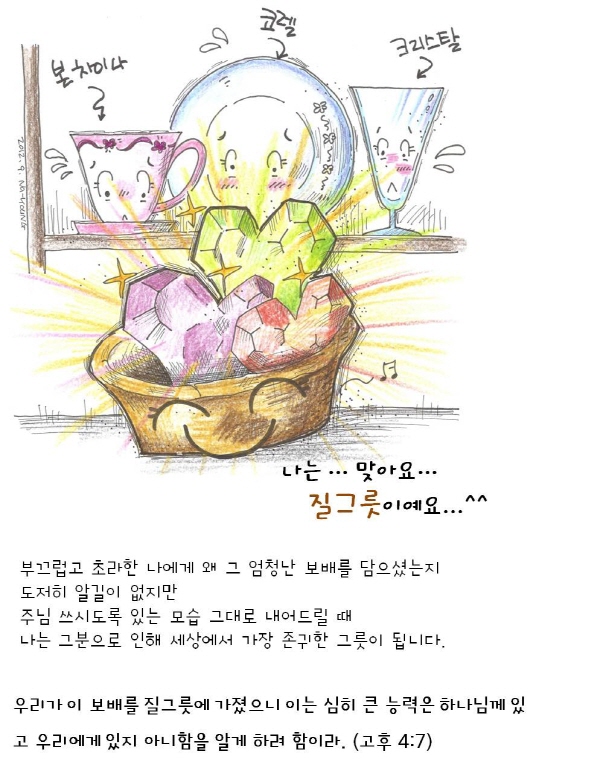 코렐
크리스탈
본차이나
2012. 9.
나는 ... 맞아요...
질그릇이예요...^^
부끄럽고 초라한 나에게 왜 그 엄청난 보배를 담으셨는지
도저히 알길이 없지만
주님 쓰시도록 있는 모습 그대로 내어드릴 때
나는 그분으로 인해 세상에서 가장 존귀한 그릇이 됩니다.
우리가 이 보배를 질그릇에 가졌으니 이는 심히 큰 능력은 하나님께 있
고 우리에게 있지 아니함을 알게 하려 함이라. (고후 4:7)